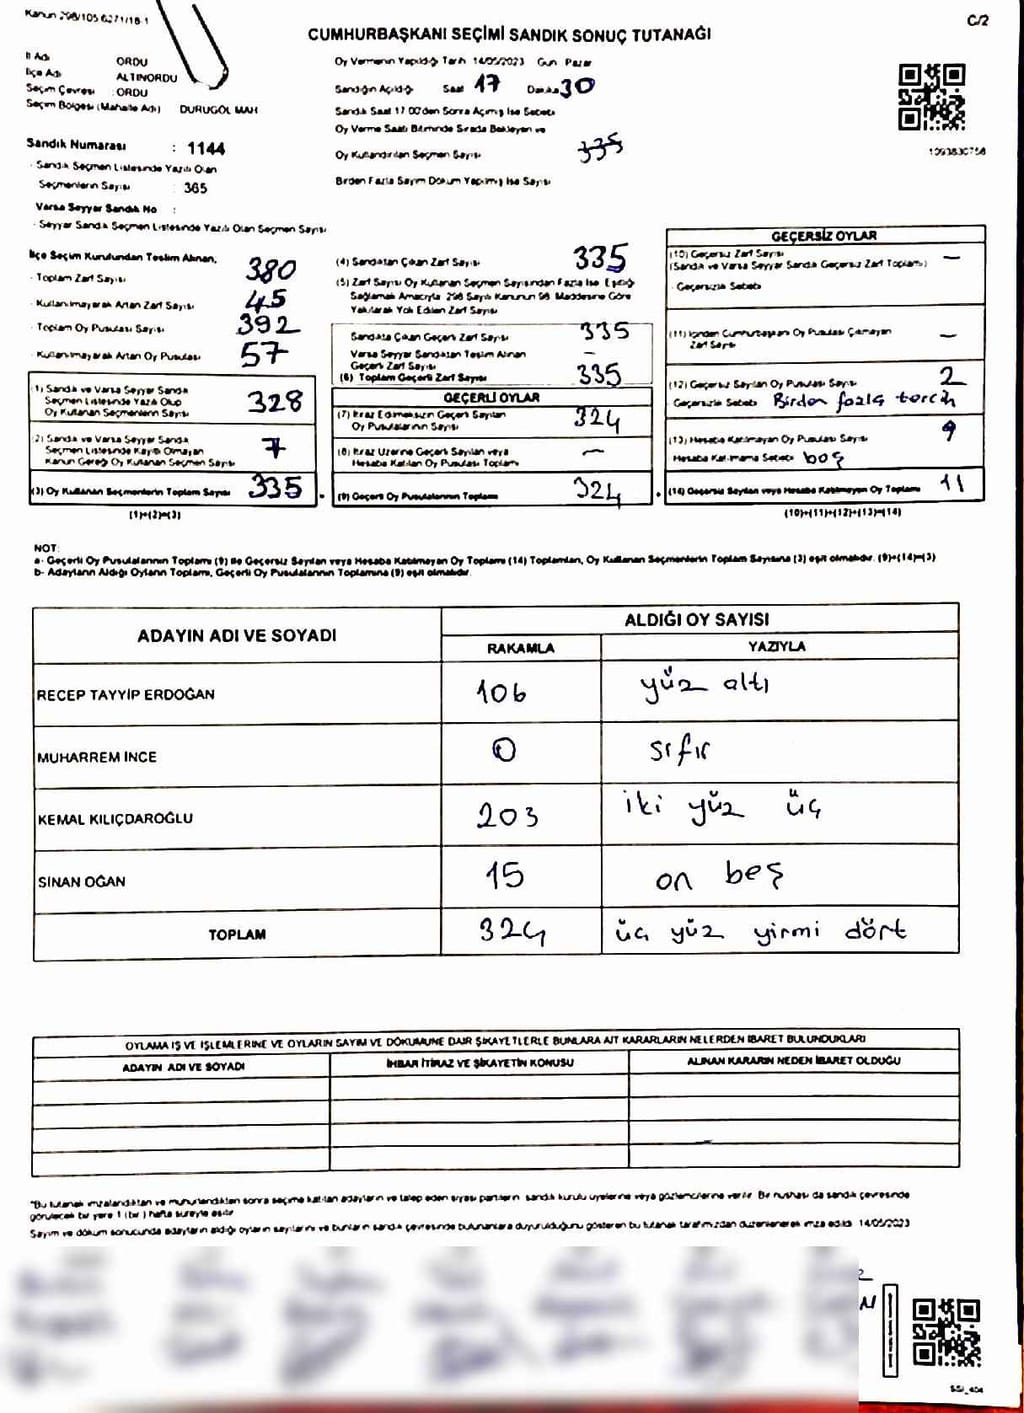 Kanun 298/105 6271/18-1
C/2
CUMHURBAŞKANI SEÇİMİ SANDIK SONUÇ TUTANAĞI
İl Adı ORDU
İlçe Adı ALTINORDU
Seçim Çevresi : ORDU
Seçim Bölgesi (Mahalle Adı) DURUGÖL MAH
Oy Vermenin Yapıldığı Tarih 14/05/2023 Gün Pazar
Sandığın Açıldığı Saat 17 Dakika 30
Sandık Saat 17 00'den Sonra Açılmış İse Sebebi
Oy Verme Saati Bitiminde Sırada Bekleyen ve
Oy Kullandırılan Seçmen Sayısı 335
Birden Fazla Sayım Döküm Yapılmış İse Sayısı
1093830758
Sandık Numarası : 1144
- Sandık Seçmen Listesinde Yazılı Olan
Seçmenlerin Sayısı : 365
Varsa Seyyar Sandık No :
- Seyyar Sandık Seçmen Listesinde Yazılı Olan Seçmen Sayısı
İlçe Seçim Kurulundan Teslim Alınan,
- Toplam Zarf Sayısı 380
- Kullanılmayarak Artan Zarf Sayısı 45
- Toplam Oy Pusulası Sayısı 392
- Kullanılmayarak Artan Oy Pusulası 57
(1) Sandık ve Varsa Seyyar Sandık
Seçmen Listesinde Yazılı Olup
Oy Kullanan Seçmenlerin Sayısı 328
(2) Sandık ve Varsa Seyyar Sandık
Seçmen Listesinde Kayıtlı Olmayan
Kanun Gereği Oy Kullanan Seçmen Sayısı 7
(3) Oy Kullanan Seçmenlerin Toplam Sayısı 335
(1)+(2)=(3)
(4) Sandıktan Çıkan Zarf Sayısı 335
(5) Zarf Sayısı Oy Kullanan Seçmen Sayısından Fazla İse, Eşitliği
Sağlamak Amacıyla 298 Sayılı Kanunun 98. Maddesine Göre
Yakılarak Yok Edilen Zarf Sayısı
Sandıkta Çıkan Geçerli Zarf Sayısı 335
Varsa Seyyar Sandıktan Teslim Alınan
Geçerli Zarf Sayısı -
(6) Toplam Geçerli Zarf Sayısı 335
GEÇERLİ OYLAR
(7) İtiraz Edilmeksizin Geçerli Sayılan
Oy Pusulalarının Sayısı 324
(8) İtiraz Üzerine Geçerli Sayılan veya
Hesaba Katılan Oy Pusulası Toplamı -
(9) Geçerli Oy Pusulalarının Toplamı 324
GEÇERSİZ OYLAR
(10) Geçersiz Zarf Sayısı -
(Sandık ve Varsa Seyyar Sandık Geçersiz Zarf Toplamı)
- Geçersizlik Sebebi
(11) İçinden Cumhurbaşkanı Oy Pusulası Çıkmayan
Zarf Sayısı -
(12) Geçersiz Sayılan Oy Pusulası Sayısı 2
Geçersizlik Sebebi Birden fazla tercih
(13) Hesaba Katılmayan Oy Pusulası Sayısı 9
Hesaba Katılmama Sebebi boş
(14) Geçersiz Sayılan veya Hesaba Katılmayan Oy Toplamı 11
(10)+(11)+(12)+(13)=(14)
NOT:
a- Geçerli Oy Pusulalarının Toplamı (9) ile Geçersiz Sayılan veya Hesaba Katılmayan Oy Toplamı (14) Toplamları, Oy Kullanan Seçmenlerin Toplam Sayısına (3) eşit olmalıdır. (9)+(14)=(3)
b- Adayların Aldığı Oyların Toplamı, Geçerli Oy Pusulalarının Toplamına (9) eşit olmalıdır.
ADAYIN ADI VE SOYADI
ALDIĞI OY SAYISI
RAKAMLA YAZIYLA
RECEP TAYYİP ERDOĞAN 106 yüz altı
MUHARREM İNCE 0 sıfır
KEMAL KILIÇDAROĞLU 203 iki yüz üç
SİNAN OĞAN 15 on beş
TOPLAM 324 üç yüz yirmi dört
OYLAMA İŞ VE İŞLEMLERİNE VE OYLARIN SAYIM VE DÖKÜMÜNE DAİR ŞİKAYETLERLE BUNLARA AİT KARARLARIN NELERDEN İBARET BULUNDUKLARI
ADAYIN ADI VE SOYADI İHBAR İTİRAZ VE ŞİKAYETİN KONUSU ALINAN KARARIN NEDEN İBARET OLDUĞU
*Bu tutanak imzalandıktan ve mühürlendikten sonra seçime katılan adayların ve talep eden siyasi partilerin sandık kurulu üyelerine veya gözlemcilerine verilir. Bir nüshası da sandık çevresinde
görülecek bir yere 1 (bir) hafta süreyle asılır
Sayım ve döküm sonucunda adayların aldığı oyların sayılarını ve bunların sandık çevresinde bulunanlara duyurulduğunu gösteren bu tutanak tarafımızdan düzenlenerek imza edildi. 14/05/2023